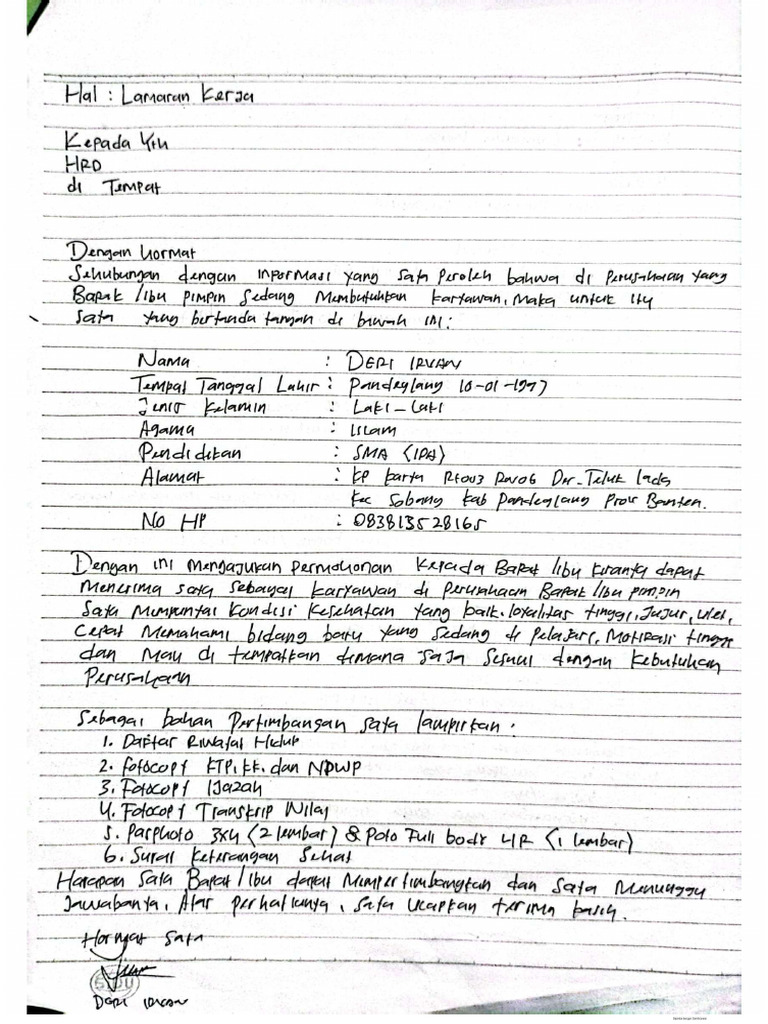 Hal : Lamaran Kerja
Kepada Yth
HRD
di Tempat
Dengan hormat
Sehubungan dengan informasi yang saya peroleh bahwa di perusahaan yang
Bapak /Ibu pimpin sedang Membutuhkan karyawan, Maka untuk itu
saya yang bertanda tangan di bawah ini :
Nama : DERI IRVAN
Tempat Tanggal Lahir : Pandeglang 10-01-1997
Jenis Kelamin : Laki-Laki
Agama : Islam
Pendidikan : SMA (IPA)
Alamat : KP Karya Rt003 Rw06 Des-Teluk lada
Kec Sobang kab Pandeglang Prov Banten.
No HP : 083813528165
Dengan ini Mengajukan Permohonan kepada Bapak /Ibu kiranya dapat
Menerima saya sebagai karyawan di perusahaan Bapak /Ibu pimpin
Saya Mempunyai kondisi kesehatan yang baik. loyalitas tinggi, Jujur, ulet,
cepat Memahami bidang baru yang sedang di pelajari, Motivasi tinggi
dan Mau di tempatkan dimana saja sesuai dengan kebutuhan
Perusahaan
Sebagai bahan Pertimbangan saya lampirkan :
1. Daftar Riwayat Hidup
2. Fotocopy KTP, KK. dan NPWP
3. Fotocopy Ijazah
4. Fotocopy Transkrip Nilai
5. Pasphoto 3x4 (2 lembar) & Poto Full body 4R (1 lembar)
6. Surat Keterangan Sehat
Harapan saya Bapak/Ibu dapat Mempertimbangkan dan saya Menunggu
Jawabanya, Atas perhatianya, saya ucapkan terima kasih.
Hormat saya
SIDU
DERI IRVAN